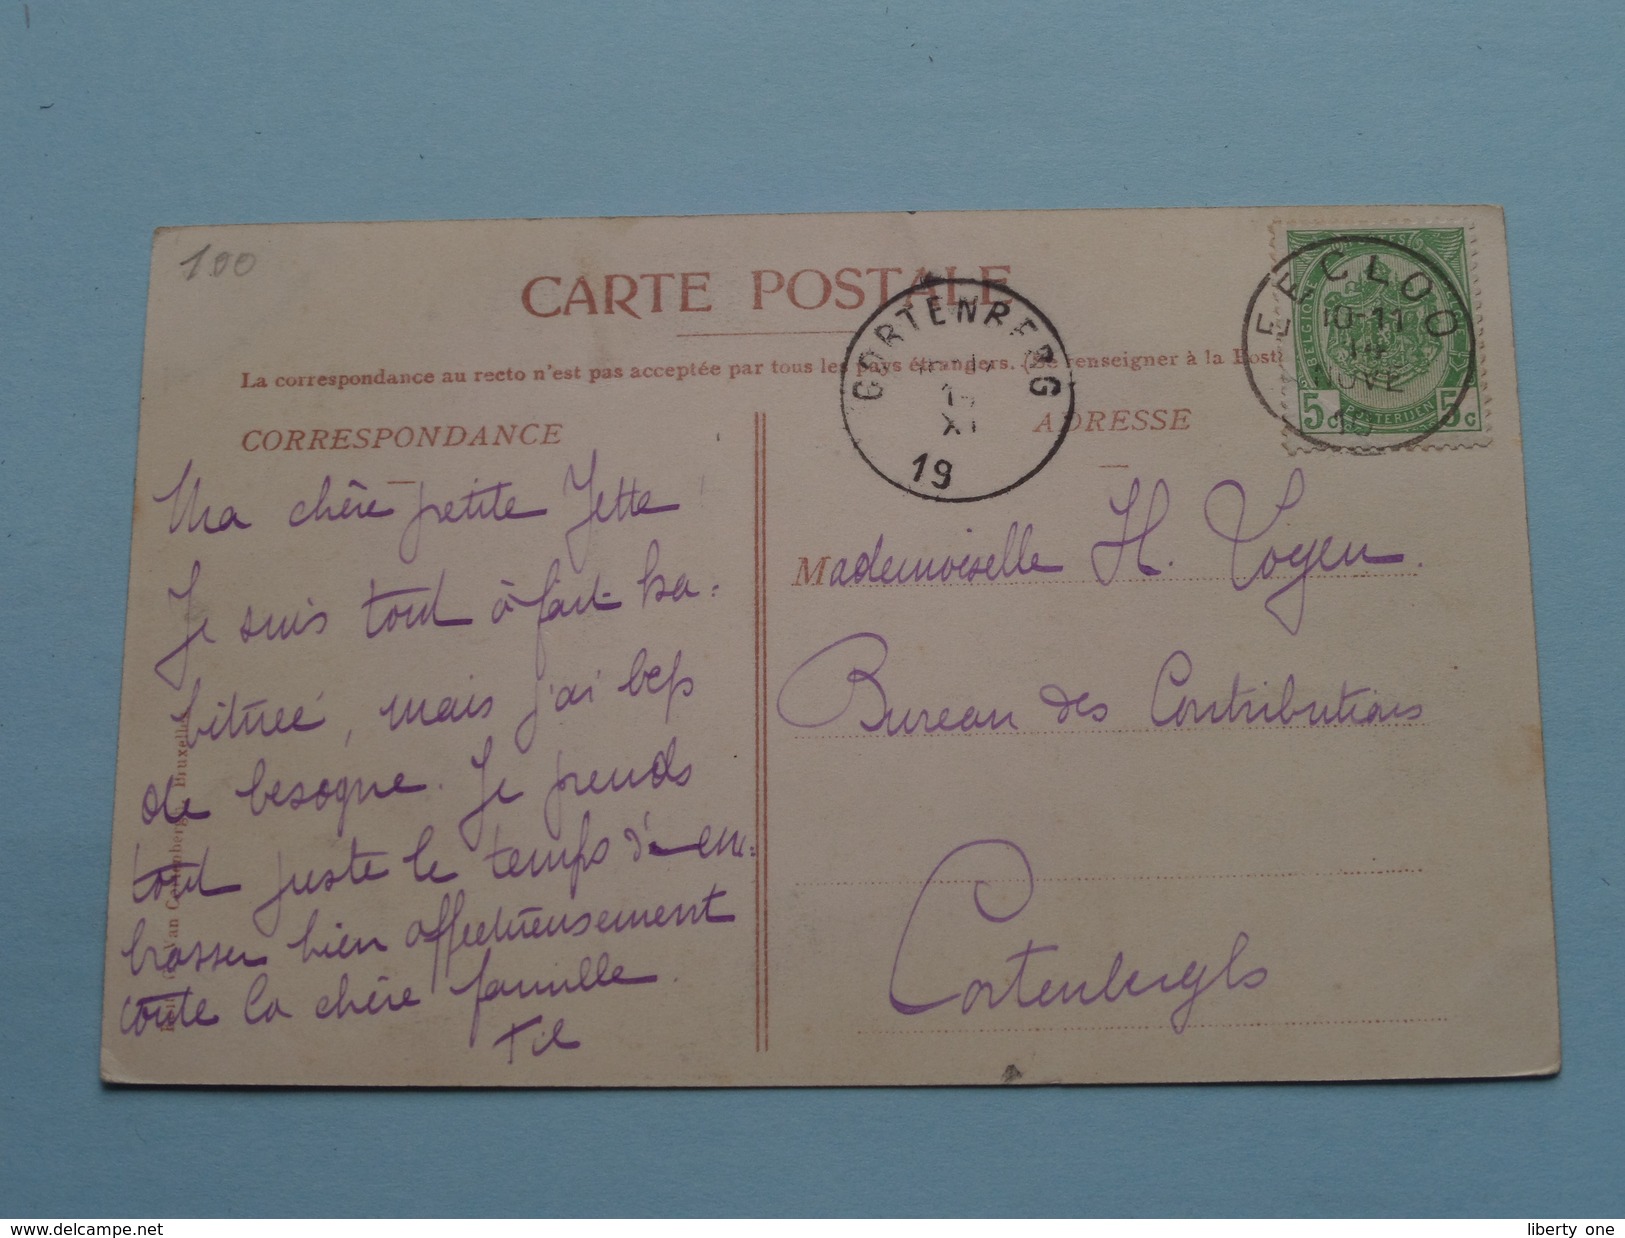 100
CARTE POSTALE
La correspondance au recto n'est pas acceptée par tous les pays étrangers. (Se renseigner à la Poste
CORRESPONDANCE
ADRESSE
CORTENBERG
XI
19
EECLOO
10-11
NOVE
BELGIQUE
POSTERIJEN
5c 5c
Ma chère petite Jette
Je suis tout à fait ha=
bituée, mais j'ai bcp
de besogne. Je prends
tout juste le temps d'em=
brasser bien affectueusement
toute la chère famille.
Mademoiselle H.
Bureau des Contributions
Bruxelles
delcampe.net
liberty one